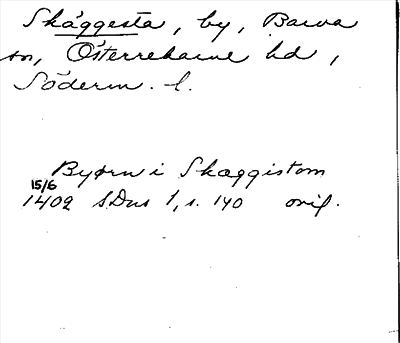 Skäggesta, by, Barva
sn, Österrekarne hd,
Söderm. l.
Byørn i Skaggistom
15/6
1402 SDns 1, s. 140 orig.